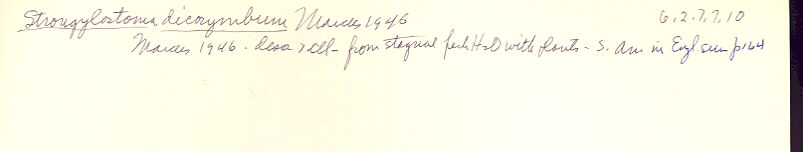 Strongylostoma dicorymbum Marcus 1946 6.2.7.7.10
Marcus 1946 - descr & ill - from stagnal fresh H2O with plants - S. Am in Engl summ p. 164